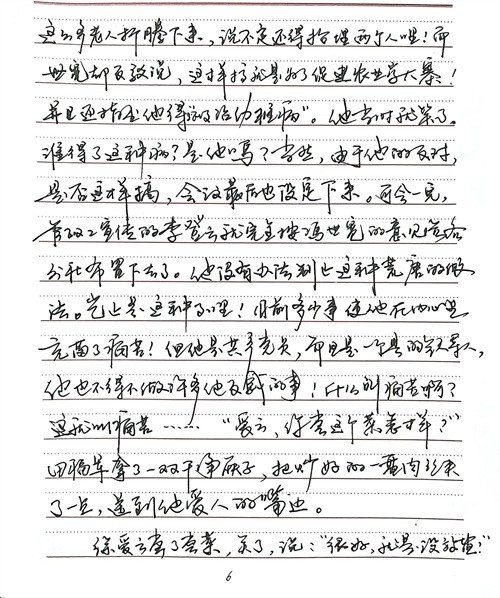 这么多老人折腾下来,说不定还得抬埋两个人哩!而
世宽却反驳说,这样搞就是为了促进农业学大寨!
并且还指出他得了政治幼稚病”。他当时就笑了。
谁得了这种病?是他吗?当然,由于他的反对,
是否这样搞,会议最后也没定下来。可会一完,
管政工宣传的李登云就完全按冯世宽的意见给各
公社布置下去了。他没有办法制止这种荒唐的做
法。岂止是这种事哩!目前多少事使他在内心里
充满了痛苦!但他是共产党员,而且是一个县的领导人,
他也不得不做许多他反对的事!什么叫痛苦啊?
这就叫痛苦……“爱云,你尝这个菜怎样?”
田福军拿了一双干净筷子,把炒好的一盘肉丝夹
了一点,送到他爱人的嘴边。
徐爱云尝了尝菜,笑了,说:“很好,就是没放盐!”
6